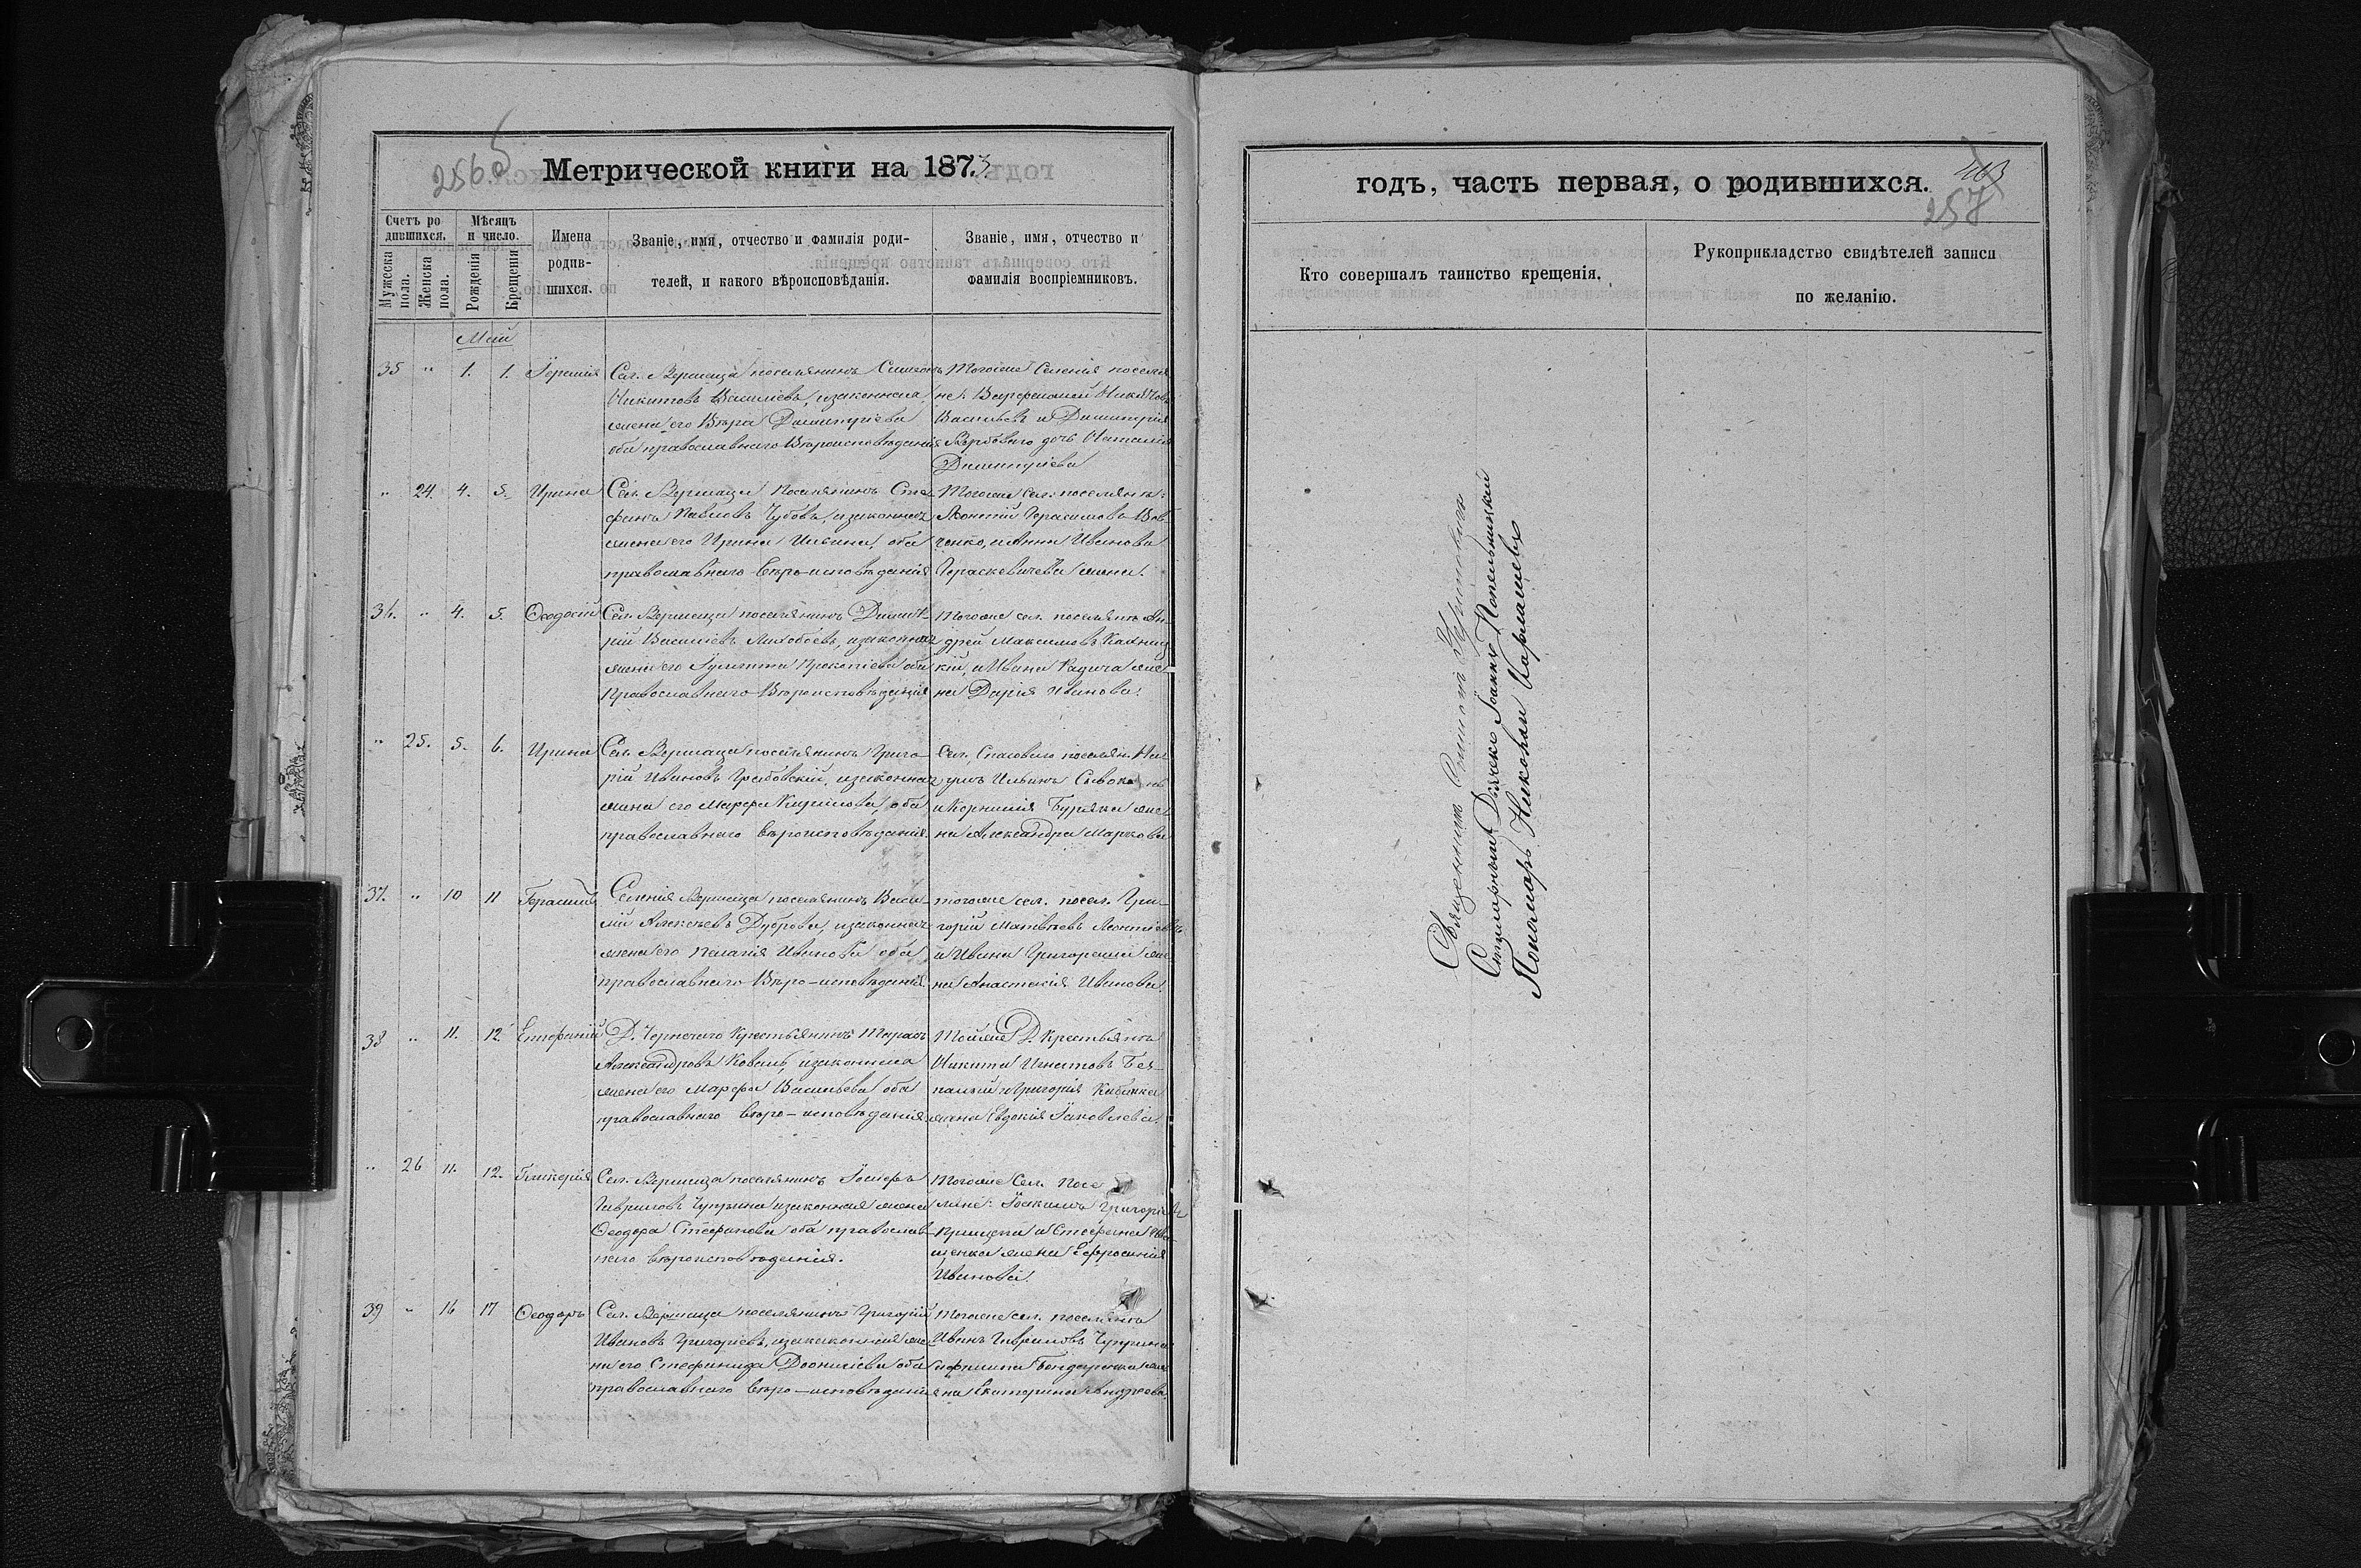 256 б
Метрической книги на 1873.
Счетъ ро
дившихся.
Мѣсяцъ
и число.
Мужеска
пола.
Женска
пола.
Рожденія
Крещенія
Имена
родив-
шихся.
Званіе, имя, отчество и фамилія роди-
телей, и какого вѣроисповѣданія.
Званіе, имя, отчество и
фамилія воспріемниковъ.
Май
35 " 1. 1. Іеремія
Сел. Вершаца поселянинъ Симеонъ
Никитовъ Василіевъ, изаконная
жена его Вѣра Димитріева
оба православнаго Вѣроисповѣданія
Тогоже Селенія поселя
не: Варфоломей Никитовъ
Васильевъ и Димитрія
Вербоваго дочь Наталія
Димитріева
" 24. 4. 5. Ирина
Сел. Вершаца Поселянинъ Сте
фанъ Павловъ Чубовъ, изаконная
жена его Ирина Ильина, оба
православнаго веро-исповѣданія
Тогоже сел. поселяне:
Леонтій Герасимовъ Вов
ченко, и Анна Иванова
Гераскевичева жена.
36. " 4. 5. Ѳеодосій
Сел. Вершаца поселянинъ Димит
рій Василіевъ Лихобаевъ, изаконная
жена его Іулитта Прокопіева оба
Православнаго-Вѣроисповѣданія
Тогоже сел. поселяне Ан
дрей Максимовъ Калниц
кій, и Ивана Кадича же
на Дарія Иванова.
" 25. 5. 6. Ирина
Сел. Вершаца поселянинъ Григо
рій Ивановъ Грабовскій, изаконная
жена его Марфа Кирилова, оба
православнаго вѣроисповѣданія.
Сел. Спасоваго поселян. На
умъ Ильинъ
и Корнилія Буряка же
на Александра Маркова
37. " 10 11 Герасимъ
Селенія Вершаца поселянинъ Васи
лій Алексѣевъ Дуброва, изаконная
жена его Пелагія Иванова оба
православнаго Вѣро-исповѣданія
тогоже сел. посел. Гри
горій Матвѣевъ Леонтіевъ
и Ивана Григораша же
на Анастасія Иванова.
38 " 11. 12. Епифаній
Д. Чернечаго Крестьянинъ Тарасъ
Александровъ Коваль, изаконная
жена его Марфа Васильева оба
православнаго веро-исповѣданія.
Тойже Д. Крестьяне
Никита Игнатовъ Без
палый и Григорія
жена Евдокія Іаковлева.
" 26 11. 12. Гликерія
Сел. Вершаца поселянинъ Іосифъ
Гавриловъ Чуприна изаконная жена
Ѳеодора Стефанова оба православ
наго вѣроисповѣданія.
Тогоже Сел. Посе
ляне: Іоакимъ Григорьевъ
и Стефана
жена Ефросинія
Иванова.
39 " 16 17 Ѳеодоръ
Сел. Вершаца поселянинъ Григорій
Ивановъ Григорьевъ, изаконная же
на его Стефанида Діонисіева оба
православнаго веро-исповѣданія
Тогоже сел. поселяне
Иванъ Гавриловъ Чуприна
и Филипа Бондаренка же
на Екатерина Андреева.
годъ, часть первая, о родившихся.
463
257
Кто совершалъ таинство крещенія.
Рукоприкладство свидѣтелей записи
по желанію.
Священникъ
Стихарный Дьячекъ Іоаннъ Попельницкій
Пономарь Николай